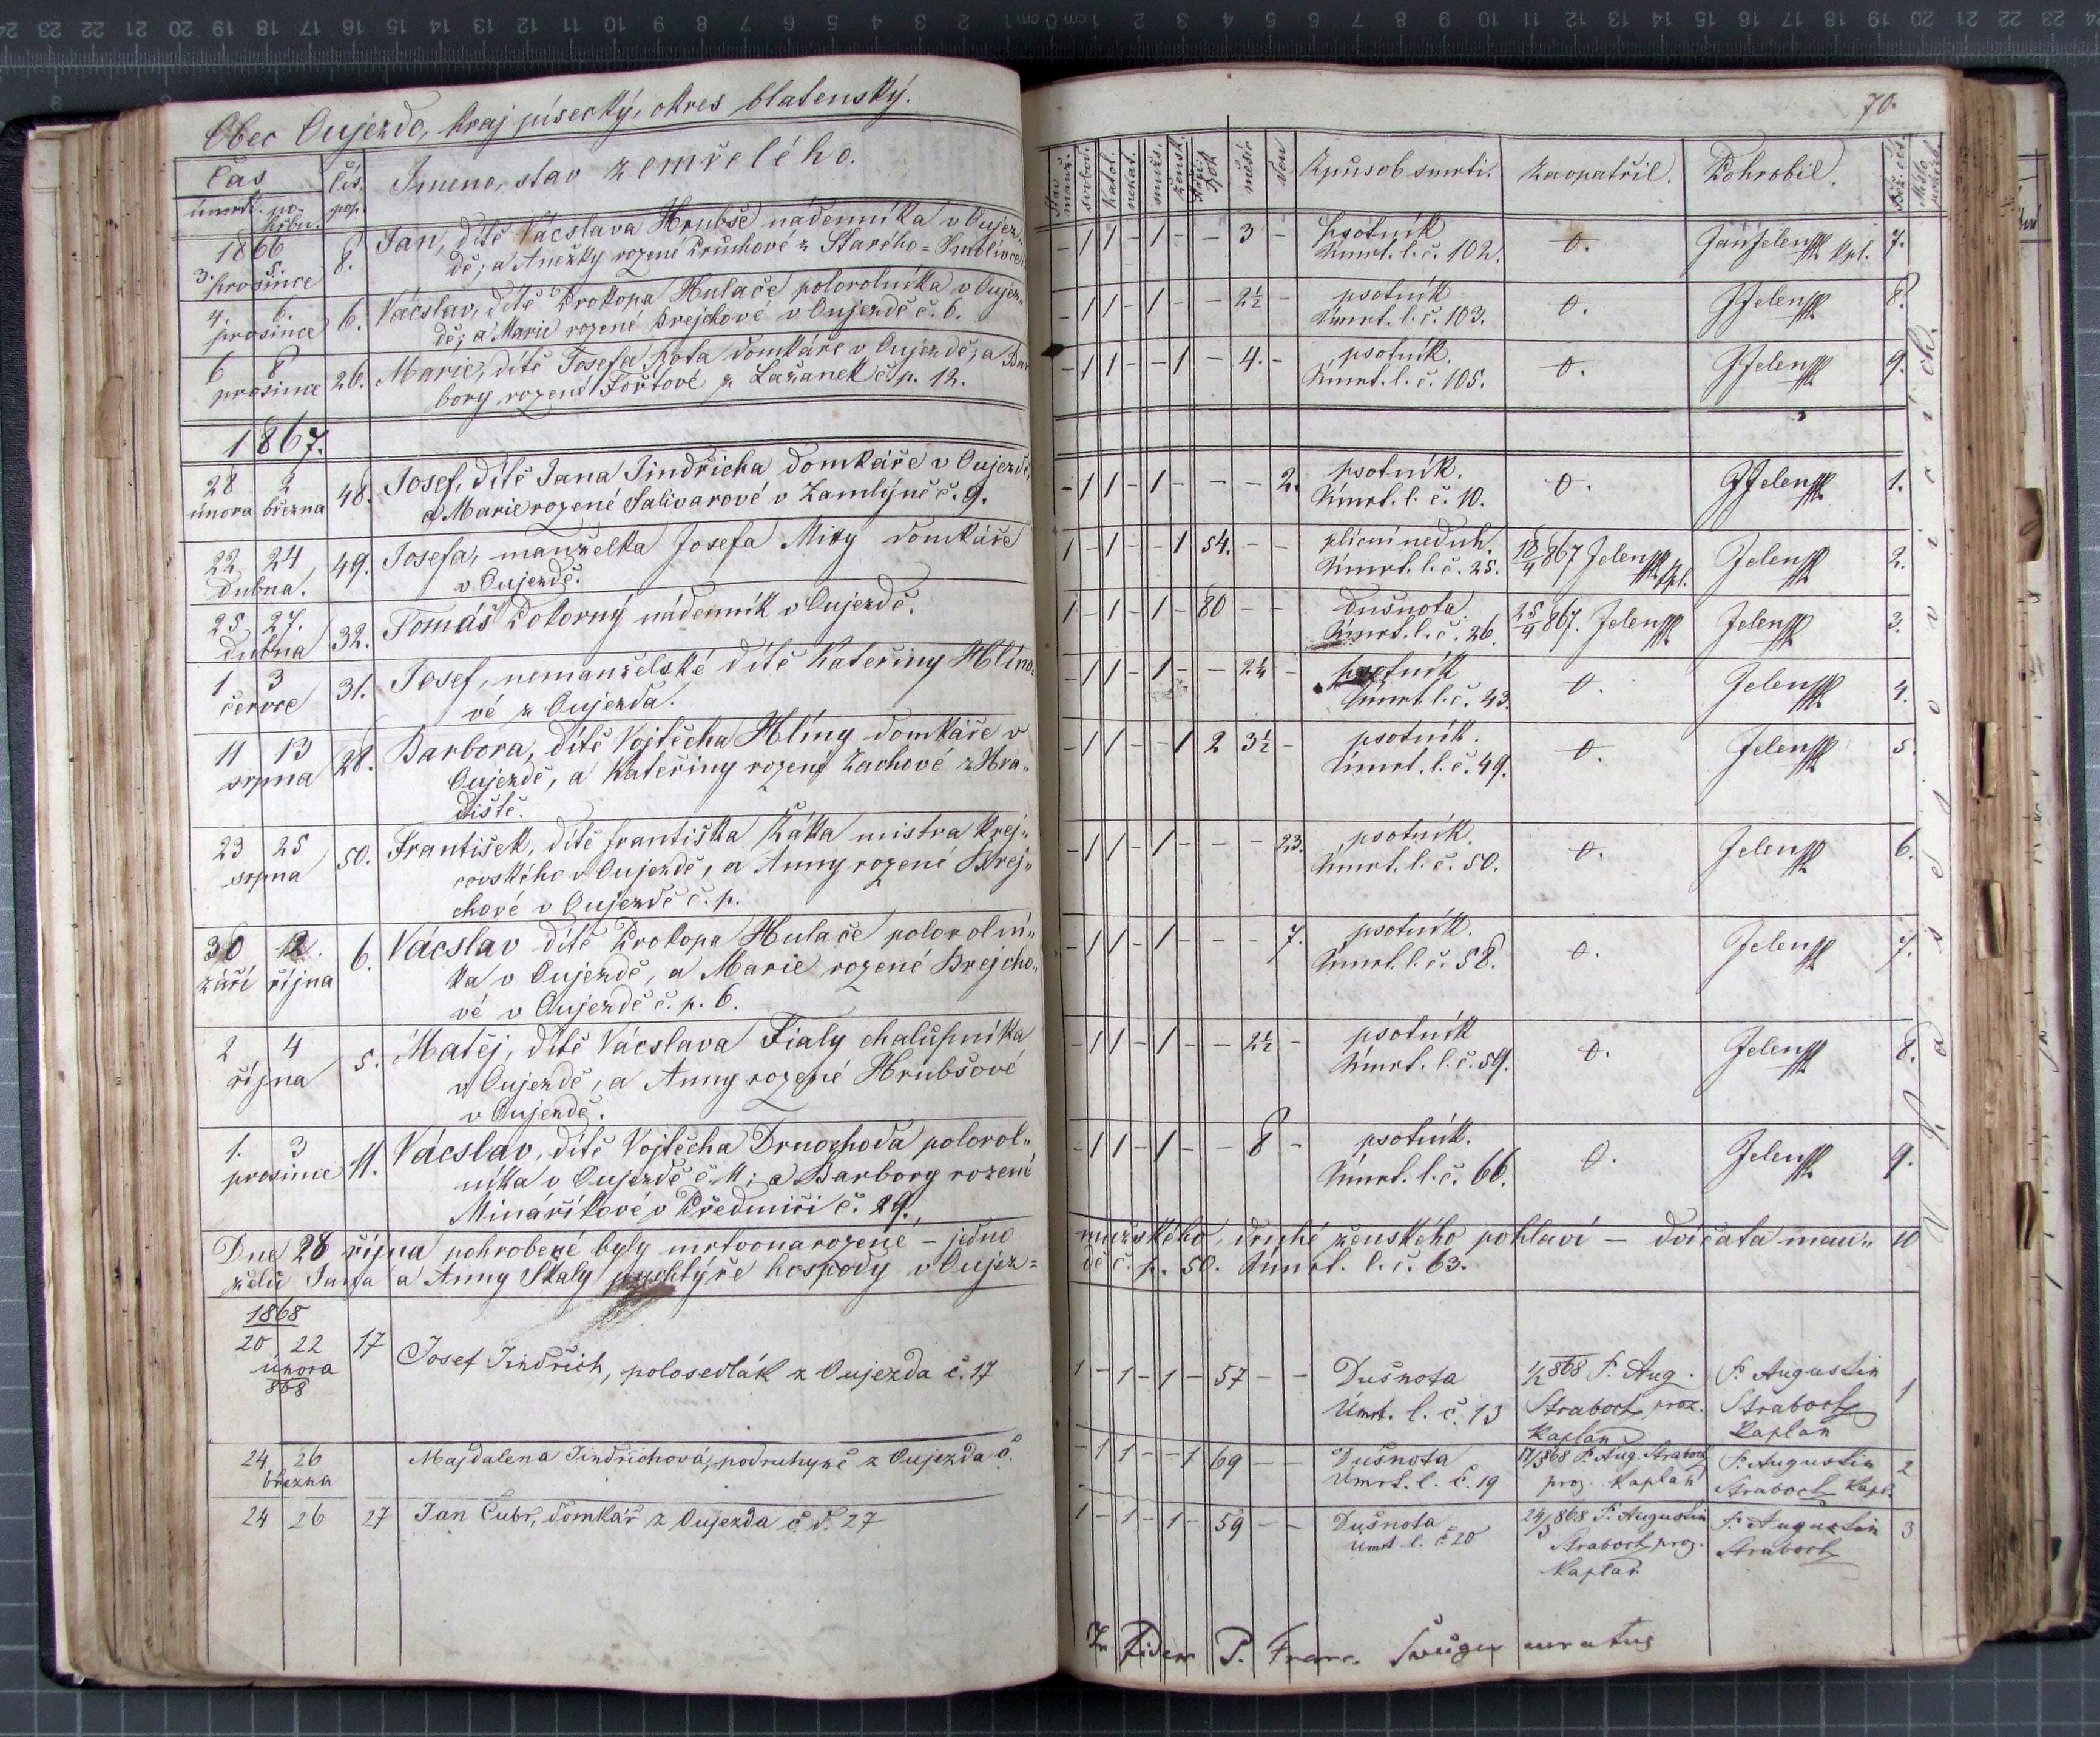 Obec Oujezd, kraj písecký, okres blatenský.
70.
Čas
úmrtí. pohřbu.
Čís. pop.
Jmeno, stav zemřelého.
Stav manž. svobod. Katol. nekat. mužs. žensk. Stáří Rok měsíc den
Způsob smrti.
Zaopatřil.
Pohrobil.
Místo pohřeb.
1866
3. 5. prosince
8.
Jan, dítě Vácslava Hrubše, nádenníka v Oujez„
dě; a Anežky rozené Průchové z Starého=Smolivce
- 1 1 - 1 - - 3 -
psotník
Úmrt. l. č. 102.
0.
Jan Jelen kpl.
7.
4. 6. prosince
6.
Vácslav, dítě Prokopa Hulače polorolníka v Oujez„
dě; a Marie rozené Brejchové v Oujezdě č. 6.
- 1 1 - 1 - - 2½ -
psotník
Úmrt. l. č. 103.
0.
JJelen
8.
6 8 prosince
26.
Marie, dítě Josefa Kota domkáře v Oujezdě; a Bar
bory rozené Fořtové z Lažanek č. p. 12.
- 1 1 - - 1 - 4. -
psotník.
Úmrt. l. č. 105.
0.
JJelen
9.
1867.
28 února 2 března
48.
Josef, dítě Jana Jindřicha domkáře v Oujezdě,
a Marie rozené Salivarové v Zamlýně č. 9.
- 1 1 - 1 - - - 2.
psotník.
Úmrt. l. č. 10.
0.
JJelen
1.
22 24 dubna.
49.
Josefa, manželka Josefa Miky domkáře
v Oujezdě.
1 - 1 - - 1 54. - -
plicní neduh.
Úmrt. l. č. 25.
18/4 867 Jelen kpl.
Jelen
2.
25 27. dubna
32.
Tomáš Pokorný nádenník v Oujezdě.
1 - 1 - 1 - 80 - -
dušnota
Úmrt. l. č. 26.
25/4 867. Jelen
Jelen
3.
1 3 červce
31.
Josef, nemanželské dítě Kateřiny Hlíno=
vé z Oujezda.
- 1 1 - 1 - - 2¼ -
psotník
Úmrt. l. č. 43.
0.
Jelen
4.
11 13 srpna
28.
Barbora, dítě Vojtěcha Hlíny domkáře v
Oujezdě, a Kateřiny rozené Zachové z Hra„
diště.
- 1 1 - - 1 2 3½ -
psotník.
Úmrt. l. č. 49.
0.
Jelen
5.
23 25 srpna
50.
František, dítě Františka Žáka mistra krej„
covského v Oujezdě, a Anny rozené Brej„
chové v Oujezdě č. p.
- 1 1 - 1 - - - 23.
psotník.
Úmrt. l. č. 50.
0.
Jelen
6.
30 září 2. října
6.
Vácslav dítě Prokopa Hulače polorolní„
ka v Oujezdě, a Marie rozené Brejcho„
vé v Oujezdě č. p. 6.
- 1 1 - 1 - - - 7.
psotník.
Úmrt. l. č. 58.
0.
Jelen
7.
2 4 října
5.
Matěj, dítě Vácslava Fialy chalupníka
v Oujezdě, a Anny rozené Hrubšové
v Oujezdě.
- 1 1 - 1 - - 2½ -
psotník
Úmrt. l. č. 59.
0.
Jelen
8.
1. 3 prosince
11.
Vácslav, dítě Vojtěcha Drnochoda polorol„
níka v Oujezdě č. 11; a Barbory rozené
Mináříkové v Předmíři č. 29.
- 1 1 - 1 - - 8 -
psotník.
Úmrt. l. č. 66.
0.
Jelen
9.
Dne 28 října pohrobené byly mrtvonarozené – jedno mužského, druhé ženského pohlaví – dvířata man„ 10
želů Jana a Anny Skaly pachtýře hospody v Oujez= dě č. p. 50. Úmrt. l. č. 63.
1868
20 22 února 868
17
Josef Jindřich, polosedlák z Oujezda č. 17
1 - 1 - 1 - 57 - -
Dušnota
Úmrt. l. č. 13
1/2 868 P. Aug.
Straboch, proz.
Kaplan
P. Augustin
Straboch
Kaplan
1
24 26 března
Majdalena Jindřichová, podruhyně z Oujezda č.
- 1 1 - - 1 69 - -
Dušnota
Úmrt. l. č. 19
17/3 868 P. Aug. Straboch
proz. Kaplan
P. Augustin
Straboch Kapl.
2
24 26
27
Jan Čubr, domkář z Oujezda č. d. 27
1 - 1 - 1 - 59 - -
Dušnota
Úmrt l. č. 20
24/3 868 P. Augustin
Straboch, proz.
Kaplan
P. Augustin
Straboch
3
In Fidem P. Franc. curatus